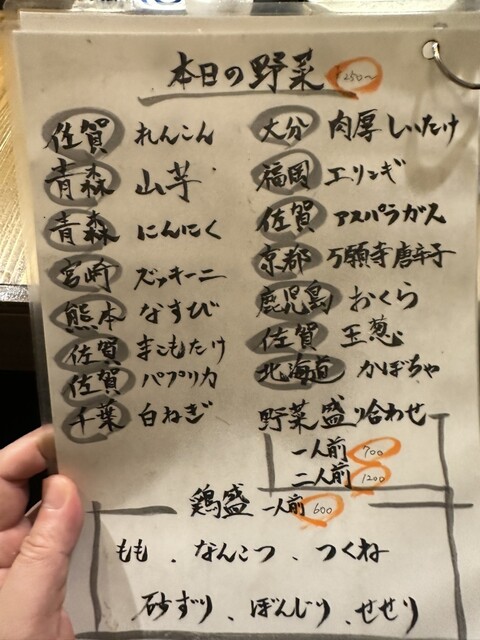 本日の野菜 ¥250〜
佐賀 れんこん
青森 山芋
青森 にんにく
宮崎 ズッキーニ
熊本 なすび
佐賀 まこもたけ
佐賀 パプリカ
千葉 白ねぎ
大分 肉厚しいたけ
福岡 エリンギ
佐賀 アスパラガス
京都 万願寺唐辛子
鹿児島 おくら
佐賀 玉葱
北海道 かぼちゃ
野菜盛り合わせ
一人前 700
二人前 1200
鶏盛 一人前 600
もも、なんこつ、つくね
砂ずり、ぼんじり、せせり